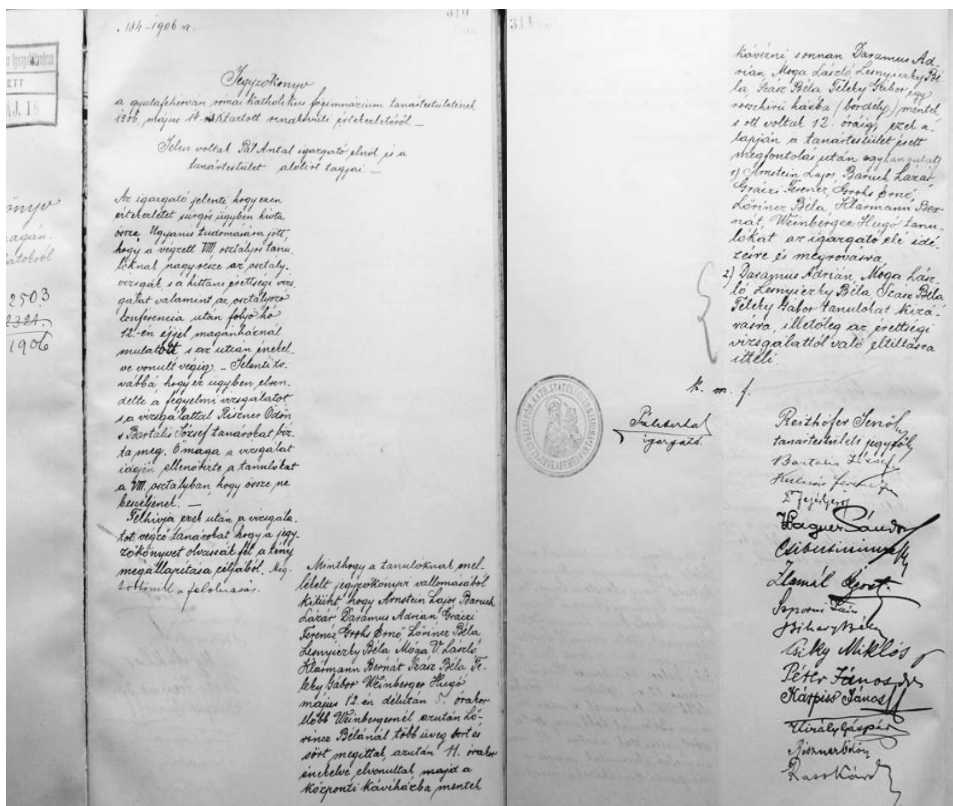 184-1906 sz.
310
Jegyzőkönyv
a gyulafehérvári római katholikus főgimnázium tanártestületének
1906. május 14.-én tartott rendkívüli értekezletéről. —
Jelen voltak Pál Antal igazgató elnök és a
tanártestület alólírt tagjai. —
Az igazgató jelenti, hogy ezen
értekezletet sürgős ügyben hívta
össze. Ugyanis tudomására jött,
hogy a végzett VIII. osztályos tanu-
lóknak nagyrésze az osztály-
vizsgák, s a hittani érettségi vizs-
gálat valamint az osztályozó
conferencia után folyó hó
12.-én éjjel magánháznál
mulatott s az utcán énekel-
ve vonult végig. — Jelenti to-
vábbá hogy ez ügyben elren-
delte a fegyelmi vizsgálatot
s a vizsgálattal Riszner Ödön
s Bartalis József tanárokat bíz-
ta meg. Ő maga a vizsgálat
idején ellenőrizte a tanulókat
a VIII. osztályban, hogy össze ne
beszéljenek. —
Felhívja ezek után a vizsgála-
tot végző tanárokat hogy a jegy-
zőkönyvet olvassák fel a tény
megállapítása céljából. Meg-
történik a felolvasás.
Minthogy a tanulóknak mel-
lékelt jegyzőkönyvi vallomásából
kitünt, hogy Arnstein Lajos, Baruch
Lázár Daramus Adrian Gráczi
Ferencz, Grohs Ernő, Lőrincz Béla
Lesnyiczky Béla Móga V. László
Klármann Bernát Szász Béla Te-
leky Gábor Weinberger Hugó
május 12.-én délután 5. órakor
előbb Weinbergernél azután Lő-
rincz Bélánál több üveg bort és
sört megittak, azután 11. órakor
énekelve elvonultak, majd a
központi kávéházba mentek
311
kávézni s onnan Daramus Ad-
rián, Moga László, Lesnyiczky Bé-
la, Szász Béla Teleky Gábor egy
rosszhírű házba (bordély) mentek,
s ott voltak 12. óráig, ezek a-
lapján a tanártestület érett
megfontolás után egyhangulag
1) Arnstein Lajos, Baruch Lázár
Gráczi Ferencz, Grohs Ernő,
Lőrincz Béla, Klármann Ber-
nát, Weinberger Hugó tanu-
lókat az igazgató elé idé-
zésre és megrovásra
2) Daramus Adrián, Móga Lász-
ló Lesnyiczky Béla, Szász Béla
Teleky Gábor tanulókat kizá-
rásra, illetőleg az érettségi
vizsgálattól való eltiltásra
itéli.
k. m. f.
Pál Antal
igazgató.
Reithofer Jenő
tanártestületi jegyző
Bartalis József
Wagner Sándor
Bihary Béla
Csiky Miklós
Péter János
Kárpiss János
Király Gáspár
Riszner Ödön
Rass Károly
2503
2321.
1906